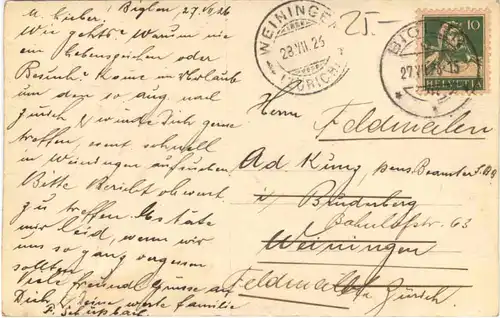 M. Lieber! Biglen, 27.VII.26
Wie gehts? Warum nie
ein Lebenszeichen oder
Besuch? Komme im Urlaub
um den so aug. nach
Zürich & würde Dich gerne
treffen, event. schnell
in Weiningen aufsuchen.
Bitte Bericht ob wert
zu treffen. Es täte
mir leid, wenn wir
uns so ganz vergessen
sollten.
Viele freundl. Grüsse an
Dich & Deine werte Familie
F. Schüpbach
25-
WEININGEN
28.VII.26
(ZÜRICH)
BIGLEN
27.VII.26-15
10
HELVETIA
Herrn
Feldmeilen
Ad. Kunz, pens. Beamter S.B.B.
Bahnhofstr. 63
Weiningen
Feldmeilen
Kt. Zürich